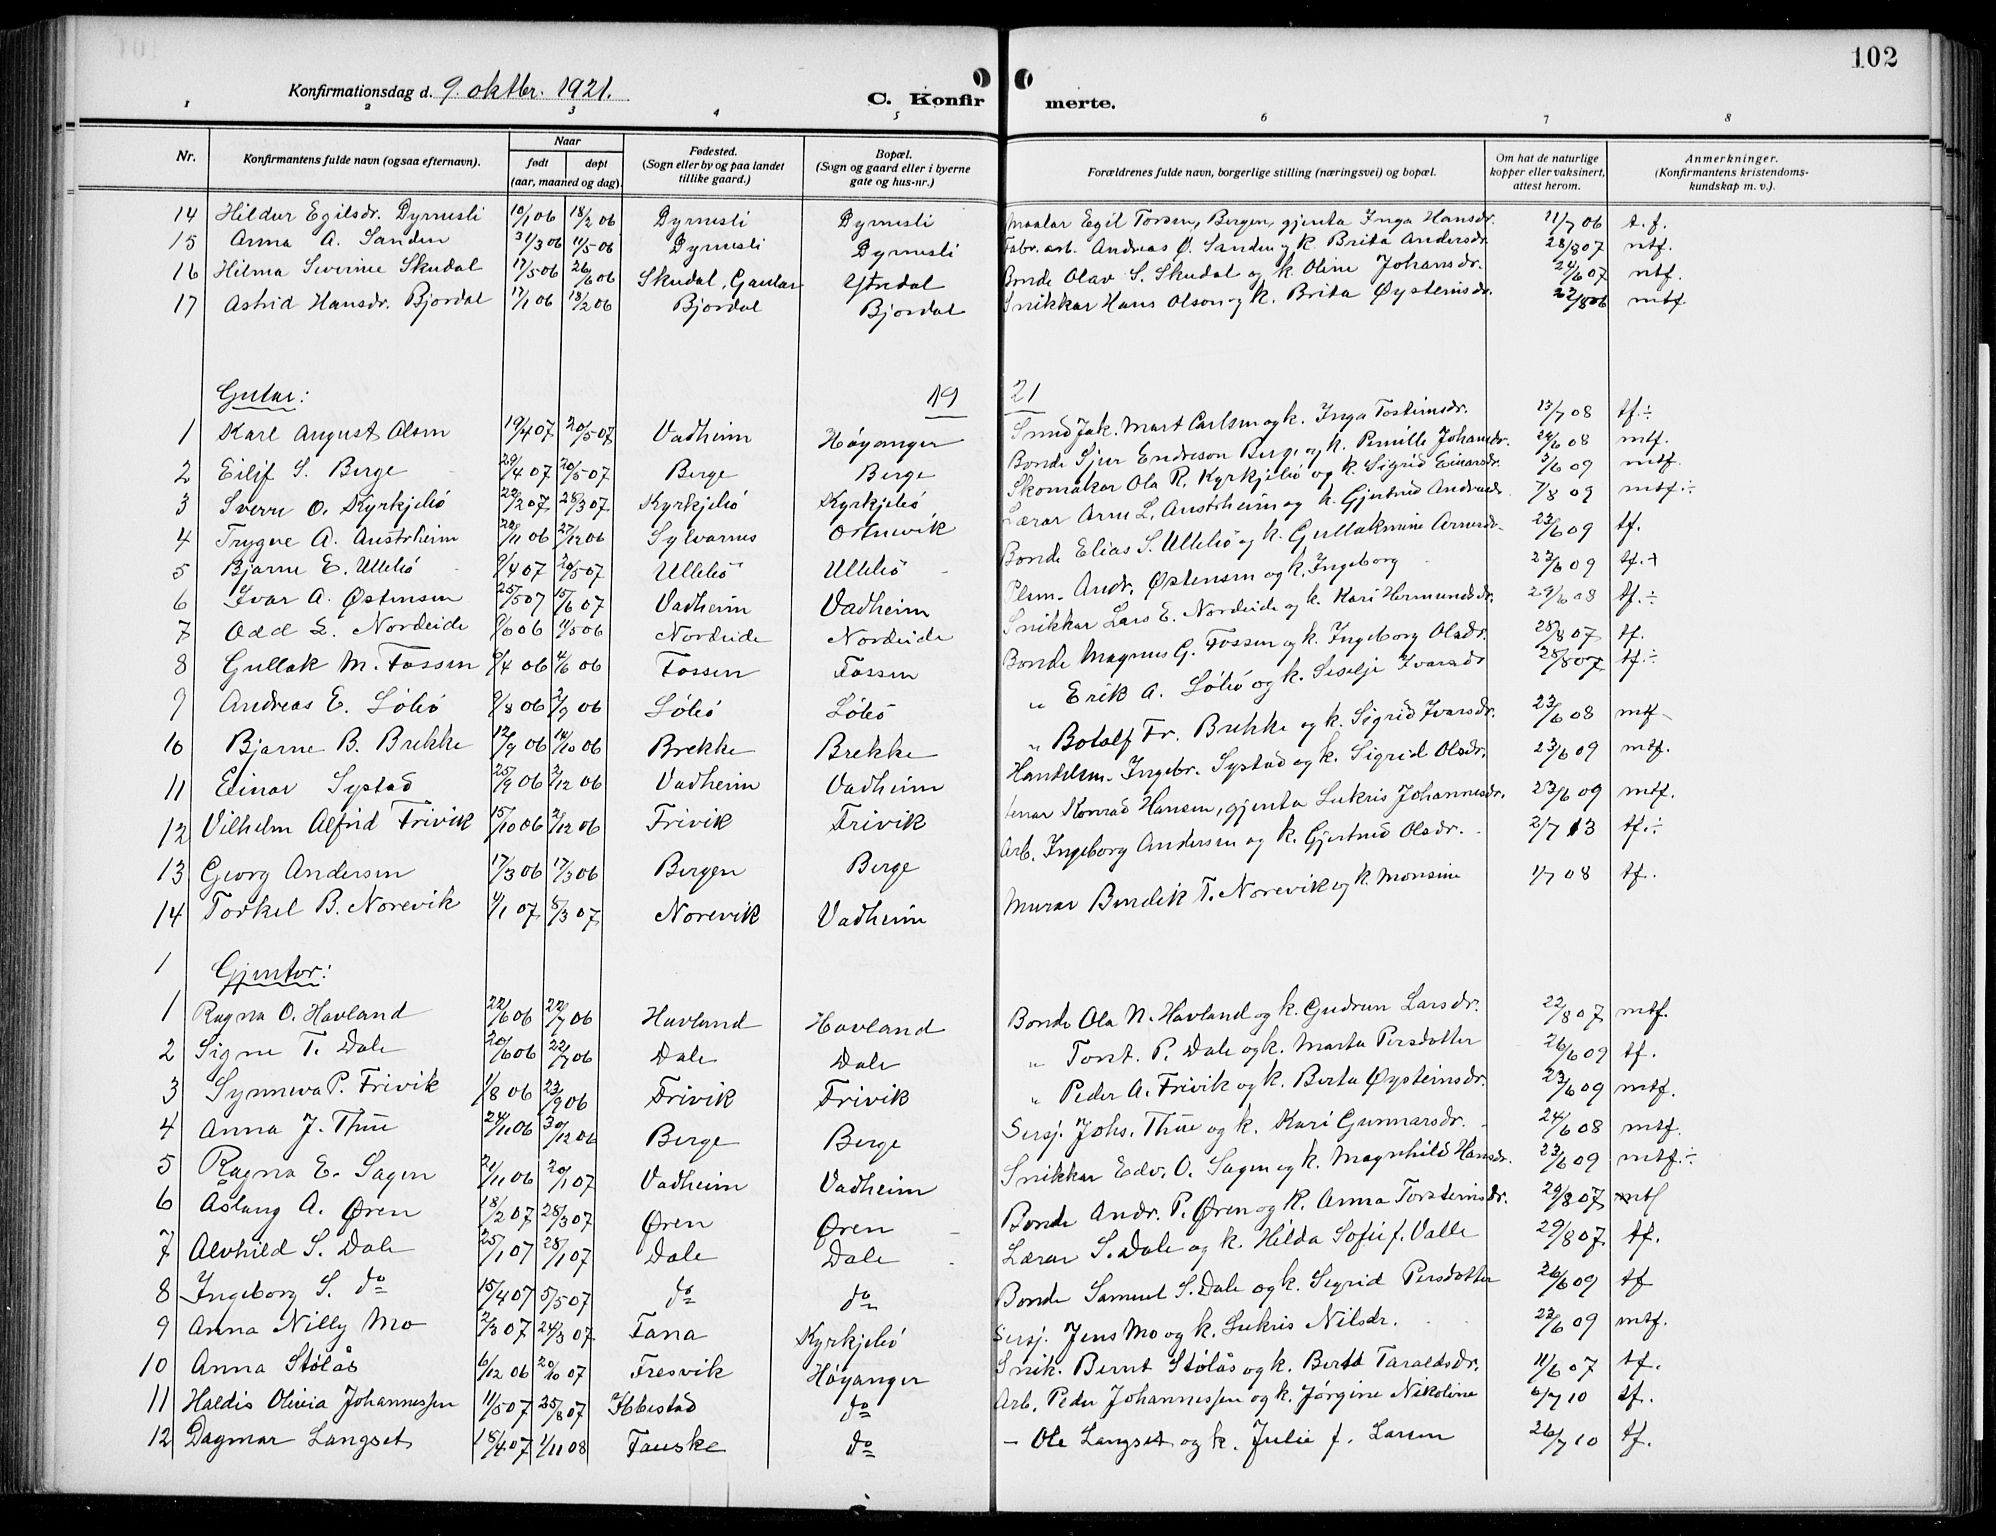 102
Konfirmationsdag d. 9. oktbr. 1921.
C. Konfirmerte.
1 2 3 4 5 6 7 8
Nr. Konfirmantens fulde navn (ogsaa efternavn). Naar født døpt (aar, maaned og dag) Fødested. (Sogn eller by og paa landet tillike gaard.) Bopæl. (Sogn og gaard eller i byerne gate og hus-nr.) Forældrenes fulde navn, borgerlige stilling (næringsvei) og bopæl. Om hat de naturlige kopper eller vaksinert, attest herom. Anmerkninger. (Konfirmantens kristendomskundskap m. v.).
14 Hildur Egilsdr. Dyrnesli 10/1 06 18/2 06 Dyrnesli Dyrnesli Maalar Egil Torsen, Bergen, gjenta Inga Hansdr. 11/7 06 t.f.
15 Anna A. Sanden 31/3 06 11/5 06 Dyrnesli Dyrnesli Fabr. arb. Andreas Ø. Sanden og k. Brita Andersdr. 28/8 07 mtf.
16 Hilma Severine Skudal 17/5 06 26/6 06 Skudal, Gaular Ytredal Bonde Olav S. Skudal og k. Oline Johansdr. 24/6 07 mtf.
17 Astrid Hansdr. Bjordal 17/1 06 18/2 06 Bjordal Bjordal Snikkar Hans Olson og k. Brita Øysteinsdr. 22/8 06 mtf.
Gutar: 19 21
1 Karl August Olsen 19/4 07 20/5 07 Vadheim Høyanger Smed Jak. Mart Carlsen og k. Inga Tosteinsdr. 13/7 08 tf. ÷
2 Eilif S. Berge 29/4 07 20/5 07 Berge Berge Bonde Sjur Endreson Berge og k. Pernille Johansdr. 24/6 08 mtf.
3 Sverre O. Kyrkjebø 22/2 07 28/3 07 Kyrkjebø Kyrkjebø Skomakar Ola R. Kyrkjebø og k. Sigrid Einarsdr. 3/6 09 mtf.
4 Trygve A. Austrheim 22/11 06 27/12 06 Sylvarnes Ostrevik Lærar Arne L. Austrheim og k. Gjertrud Andreasdr. 7/8 09 mtf. ÷
5 Bjarne E. Ullebø 9/4 07 20/5 07 Ullebø Ullebø Bonde Elias S. Ullebø og k. Gullakmine Arnesdr. 23/6 09 tf.
6 Ivar A. Østensen 25/5 07 15/6 07 Vadheim Vadheim Plsm. Andr. Østensen og k. Ingeborg 23/6 09 tf. +
7 Odd L. Nordeide 9/6 06 11/5 06 Nordeide Nordeide Snikkar Lars E. Nordeide og k. Kari Hermundsdr. 29/6 08 tf. ÷
8 Gullak M. Fossen 9/4 06 4/6 06 Fossen Fossen Bonde Magnus G. Fossen og k. Ingeborg Olsdr. 28/8 07 tf.
9 Andreas E. Løbø 9/8 06 2/9 06 Løbø Løbø " Erik A. Løbø og k. Seselje Ivarsdr 28/8 07 tf. ÷
10 Bjarne B. Brekke 12/9 06 14/10 06 Brekke Brekke " Botolf Fr. Brekke og k. Sigrid Ivarsdr. 23/6 08 mtf
11 Einar Systad 25/9 06 2/12 06 Vadheim Vadheim Handelsm. Ingebr. Systad og k. Sigrid Olsdr. 23/6 09 mtf.
12 Vilhelm Alfred Frivik 15/10 06 2/12 06 Frivik Frivik Konrad Hansen, gjenta Lukris Johannesdr. 23/6 09 mtf.
13 Georg Andersen 17/3 06 17/3 06 Bergen Berge Arb. Ingeborg Andersen og k. Gjertrud Olsdr. 2/7 13 tf. ÷
14 Torkel B. Norevik 4/1 07 8/3 07 Norevik Vadheim Murar Bendik T. Norevik og k. Monsine 1/7 08 tf.
1 Gjentor:
1 Ragna O. Havland 22/6 06 22/7 06 Havland Havland Bonde Ola N. Havland og k. Gudrun Larsdr. 22/8 07 mtf.
2 Signe T. Dale 20/6 06 22/7 06 Dale Dale " Torst. P. Dale og k. Marta Persdotter 26/6 09 tf.
3 Synneva P. Frivik 1/8 06 23/9 06 Frivik Frivik " Peder A. Frivik og k. Berta Øysteinsdr. 23/6 09 mtf.
4 Anna J. Thue 24/11 06 30/12 06 Berge Berge Sersj. Johs. Thue og k. Kari Gunnarsdr. 24/6 08 mtf.
5 Ragna E. Sagen 21/11 06 20/1 07 Vadheim Vadheim Snikkar Edv. O. Sagen og k. Magnhild Hansdr. 23/6 09 mtf. ÷
6 Åslaug A. Øren 18/2 07 28/3 07 Øren Øren Bonde Andr. P. Øren og k. Anna Torsteinsdr. 29/8 07 mtf
7 Alvhild S. Dale 25/1 07 28/1 07 Dale Dale Lærar S. Dale og k. Hilda Sofie f. Valle 29/8 07 tf.
8 Ingeborg S. do 15/4 07 5/5 07 do do Bonde Samuel S. Dale og k. Sigrid Persdotter 26/6 09 tf
9 Anna Nilly Mo 2/3 07 24/3 07 Fana Kyrkjebø Sersj. Jens Mo og k. Lukris Nilsdr. 22/6 09 mtf.
10 Anna Stølås 6/12 06 20/10 07 Fresvik Høyanger Snik. Bernt Stølås og k. Berta Taraldsdr. 11/6 07 tf.
11 Haldis Olivia Johannessen 11/5 07 25/8 07 Ibbestad do Arb. Peder Johannessen og k. Jørgine Nikoline 6/7 10 tf.
12 Dagmar Langset 18/4 07 1/11 08 Fauske do - Ole Langset og k. Julie f. Larsen 26/7 10 tf.